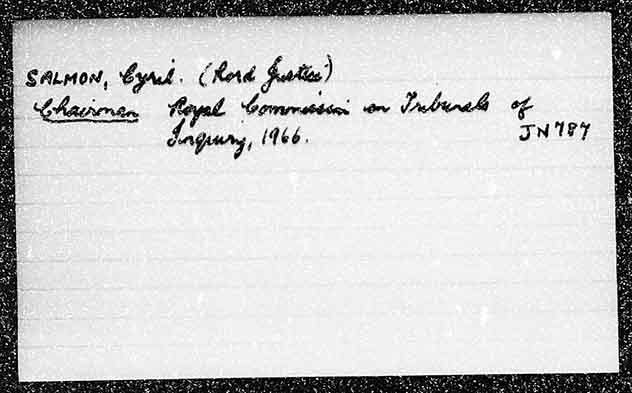 SALMON, Cyril. (Lord Justice)
Chairman Royal Commission on Tribunals of
Inquiry, 1966.
JN787